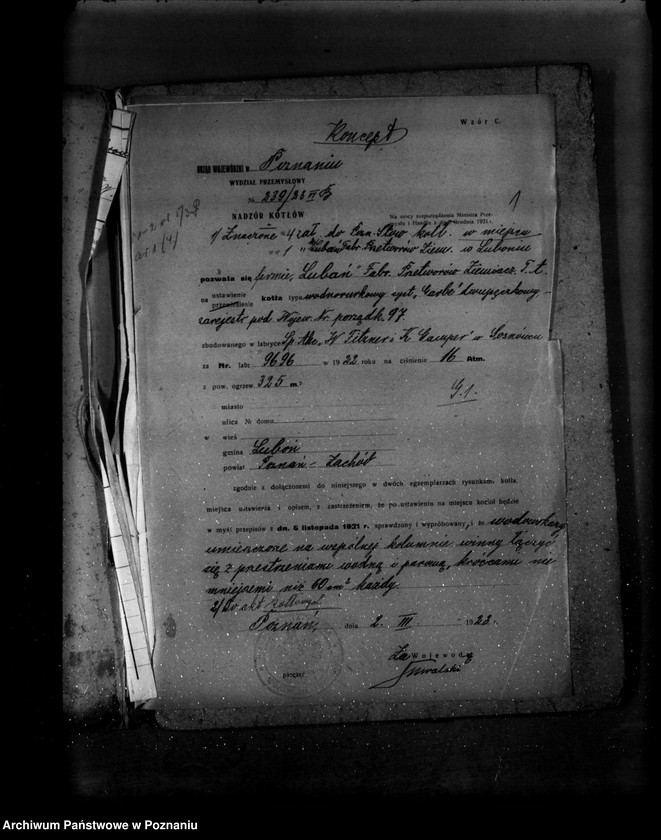 Wzór C.
Koncept
URZĄD WOJEWÓDZKI w Poznaniu
WYDZIAŁ PRZEMYSŁOWY
№ 239/23 VI
1
NADZÓR KOTŁÓW
Na mocy rozporządzenia Ministra Prze-
mysłu i Handlu z dn. grudnia 1921 r.
1/ Znaczone 4 zał. do Pan. Stow. kotł. w miejscu
1 "Lubań Fabr. Przetworów Ziem. w Luboniu
pozwala się firmie "Lubań" Fabr. Przetworów Ziemiacz. T. A.
na ustawienie kotła typu wodnorurkowy syst. "Garbe" dwupęczkowy
przewiezienie
zarejestr. pod Wojew. Nr. porządk. 97.
zbudowanego w fabryce Sp. Akc. W. Fitzner i K. Gamper w Sosnowcu
za Nr. fabr. 9696 w 1922 roku na ciśnienie 16 Atm.
z pow. ogrzew. 325 m.²
miasto
ulica № domu
w wieś
gmina Luboń
powiat Poznań - Zachód
zgodnie z dołączonemi do niniejszego w dwóch egzemplarzach rysunkam. kotła,
miejsca ustawienia i opisem, z zastrzeżeniem, że po ustawieniu na miejscu kocioł będzie
w myśl przepisów z dn. 5 listopada 1921 r. sprawdzony i wypróbowany i że wodowskazy
umieszczone na wspólnej kolumnie winny łączyć
się z przestrzeniami wodną i parową, króćcami nie
mniejszemi niż 60 cm² każdy.
2/ Do akt kotłowych
Poznań, dnia 2. III 1923 r.
Za Wojewodę
pieczęć
Archiwum Państwowe w Poznaniu